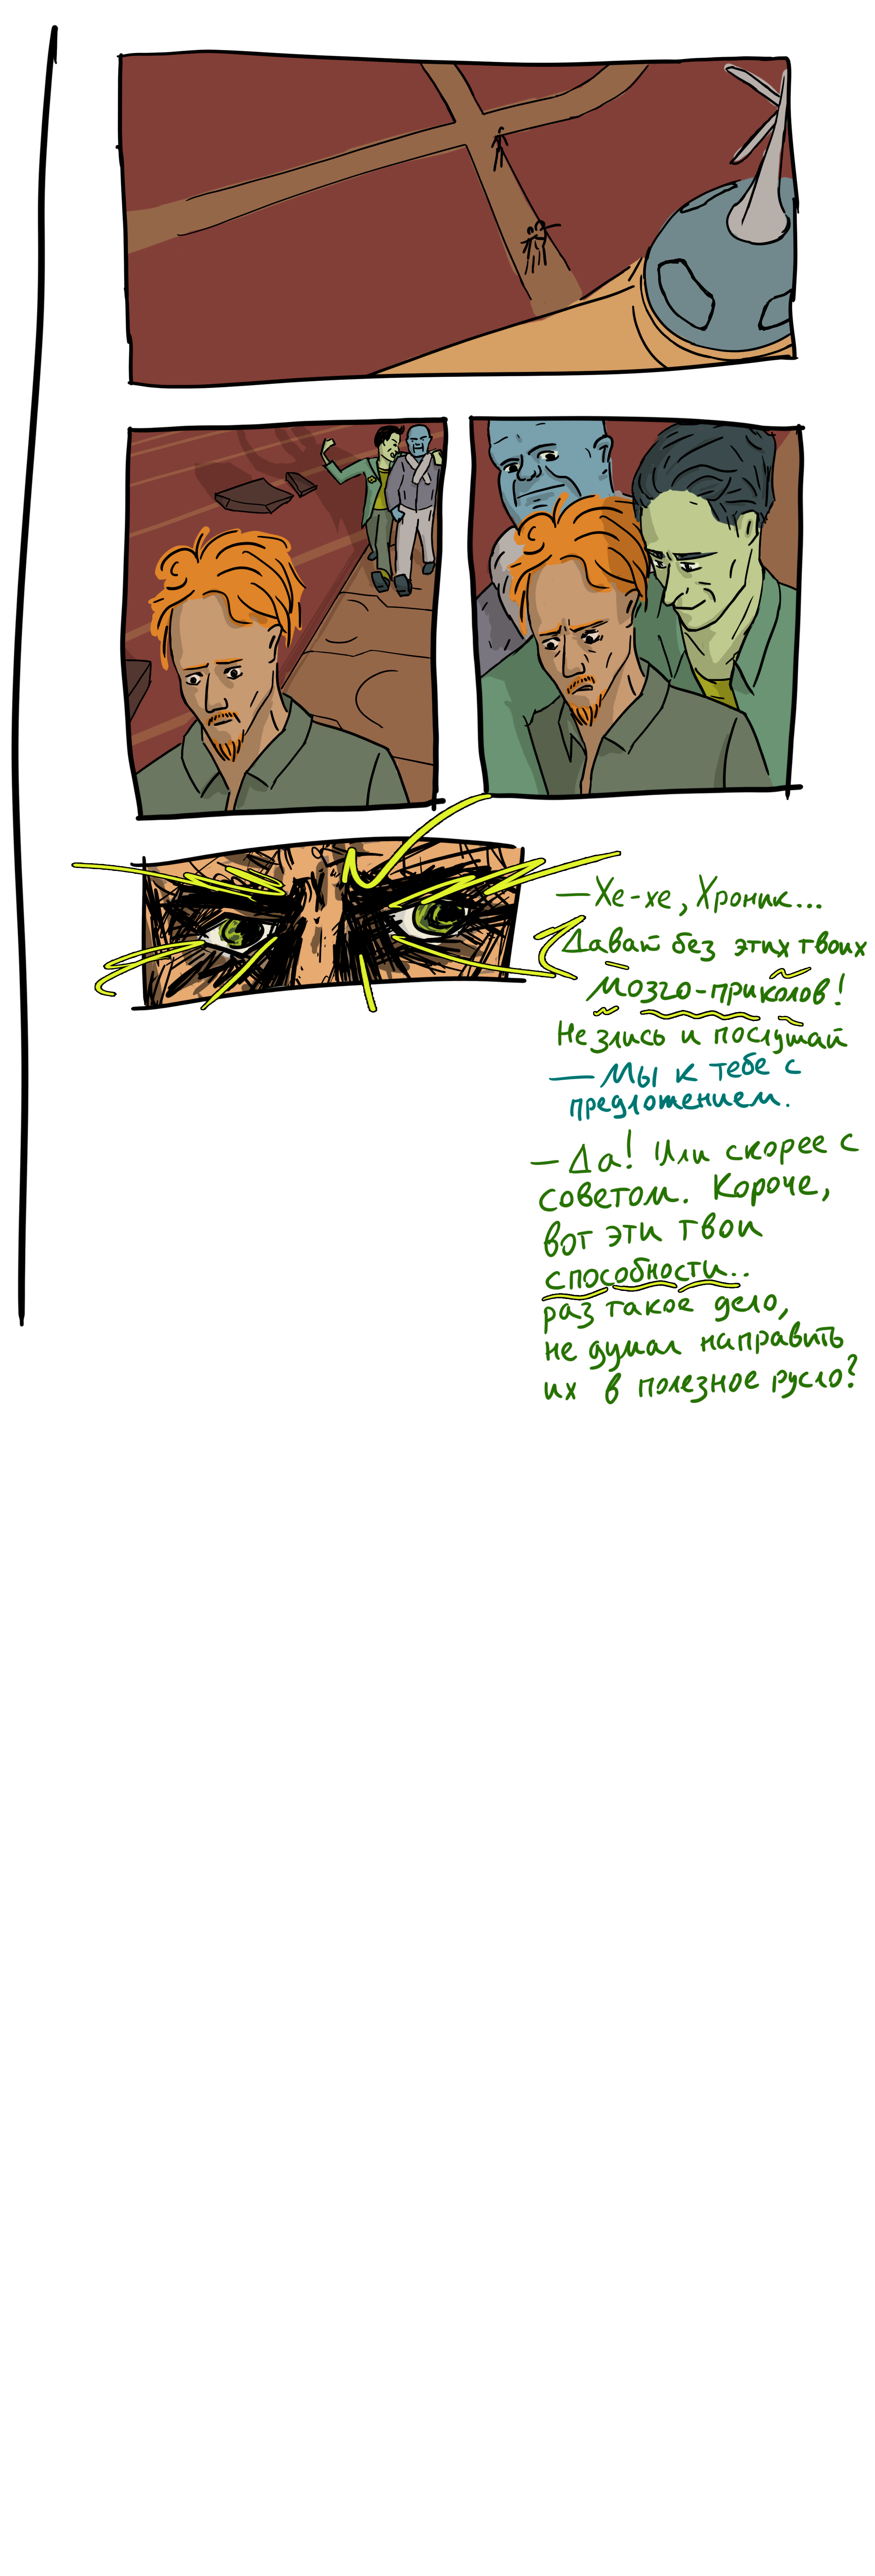 — Хе-хе, Хроник...
Давай без этих твоих
мозго-приколов!
Не злись и послушай
— Мы к тебе с
предложением.
— Да! Или скорее с
советом. Короче,
вот эти твои
способности..
раз такое дело,
не думал направить
их в полезное русло?